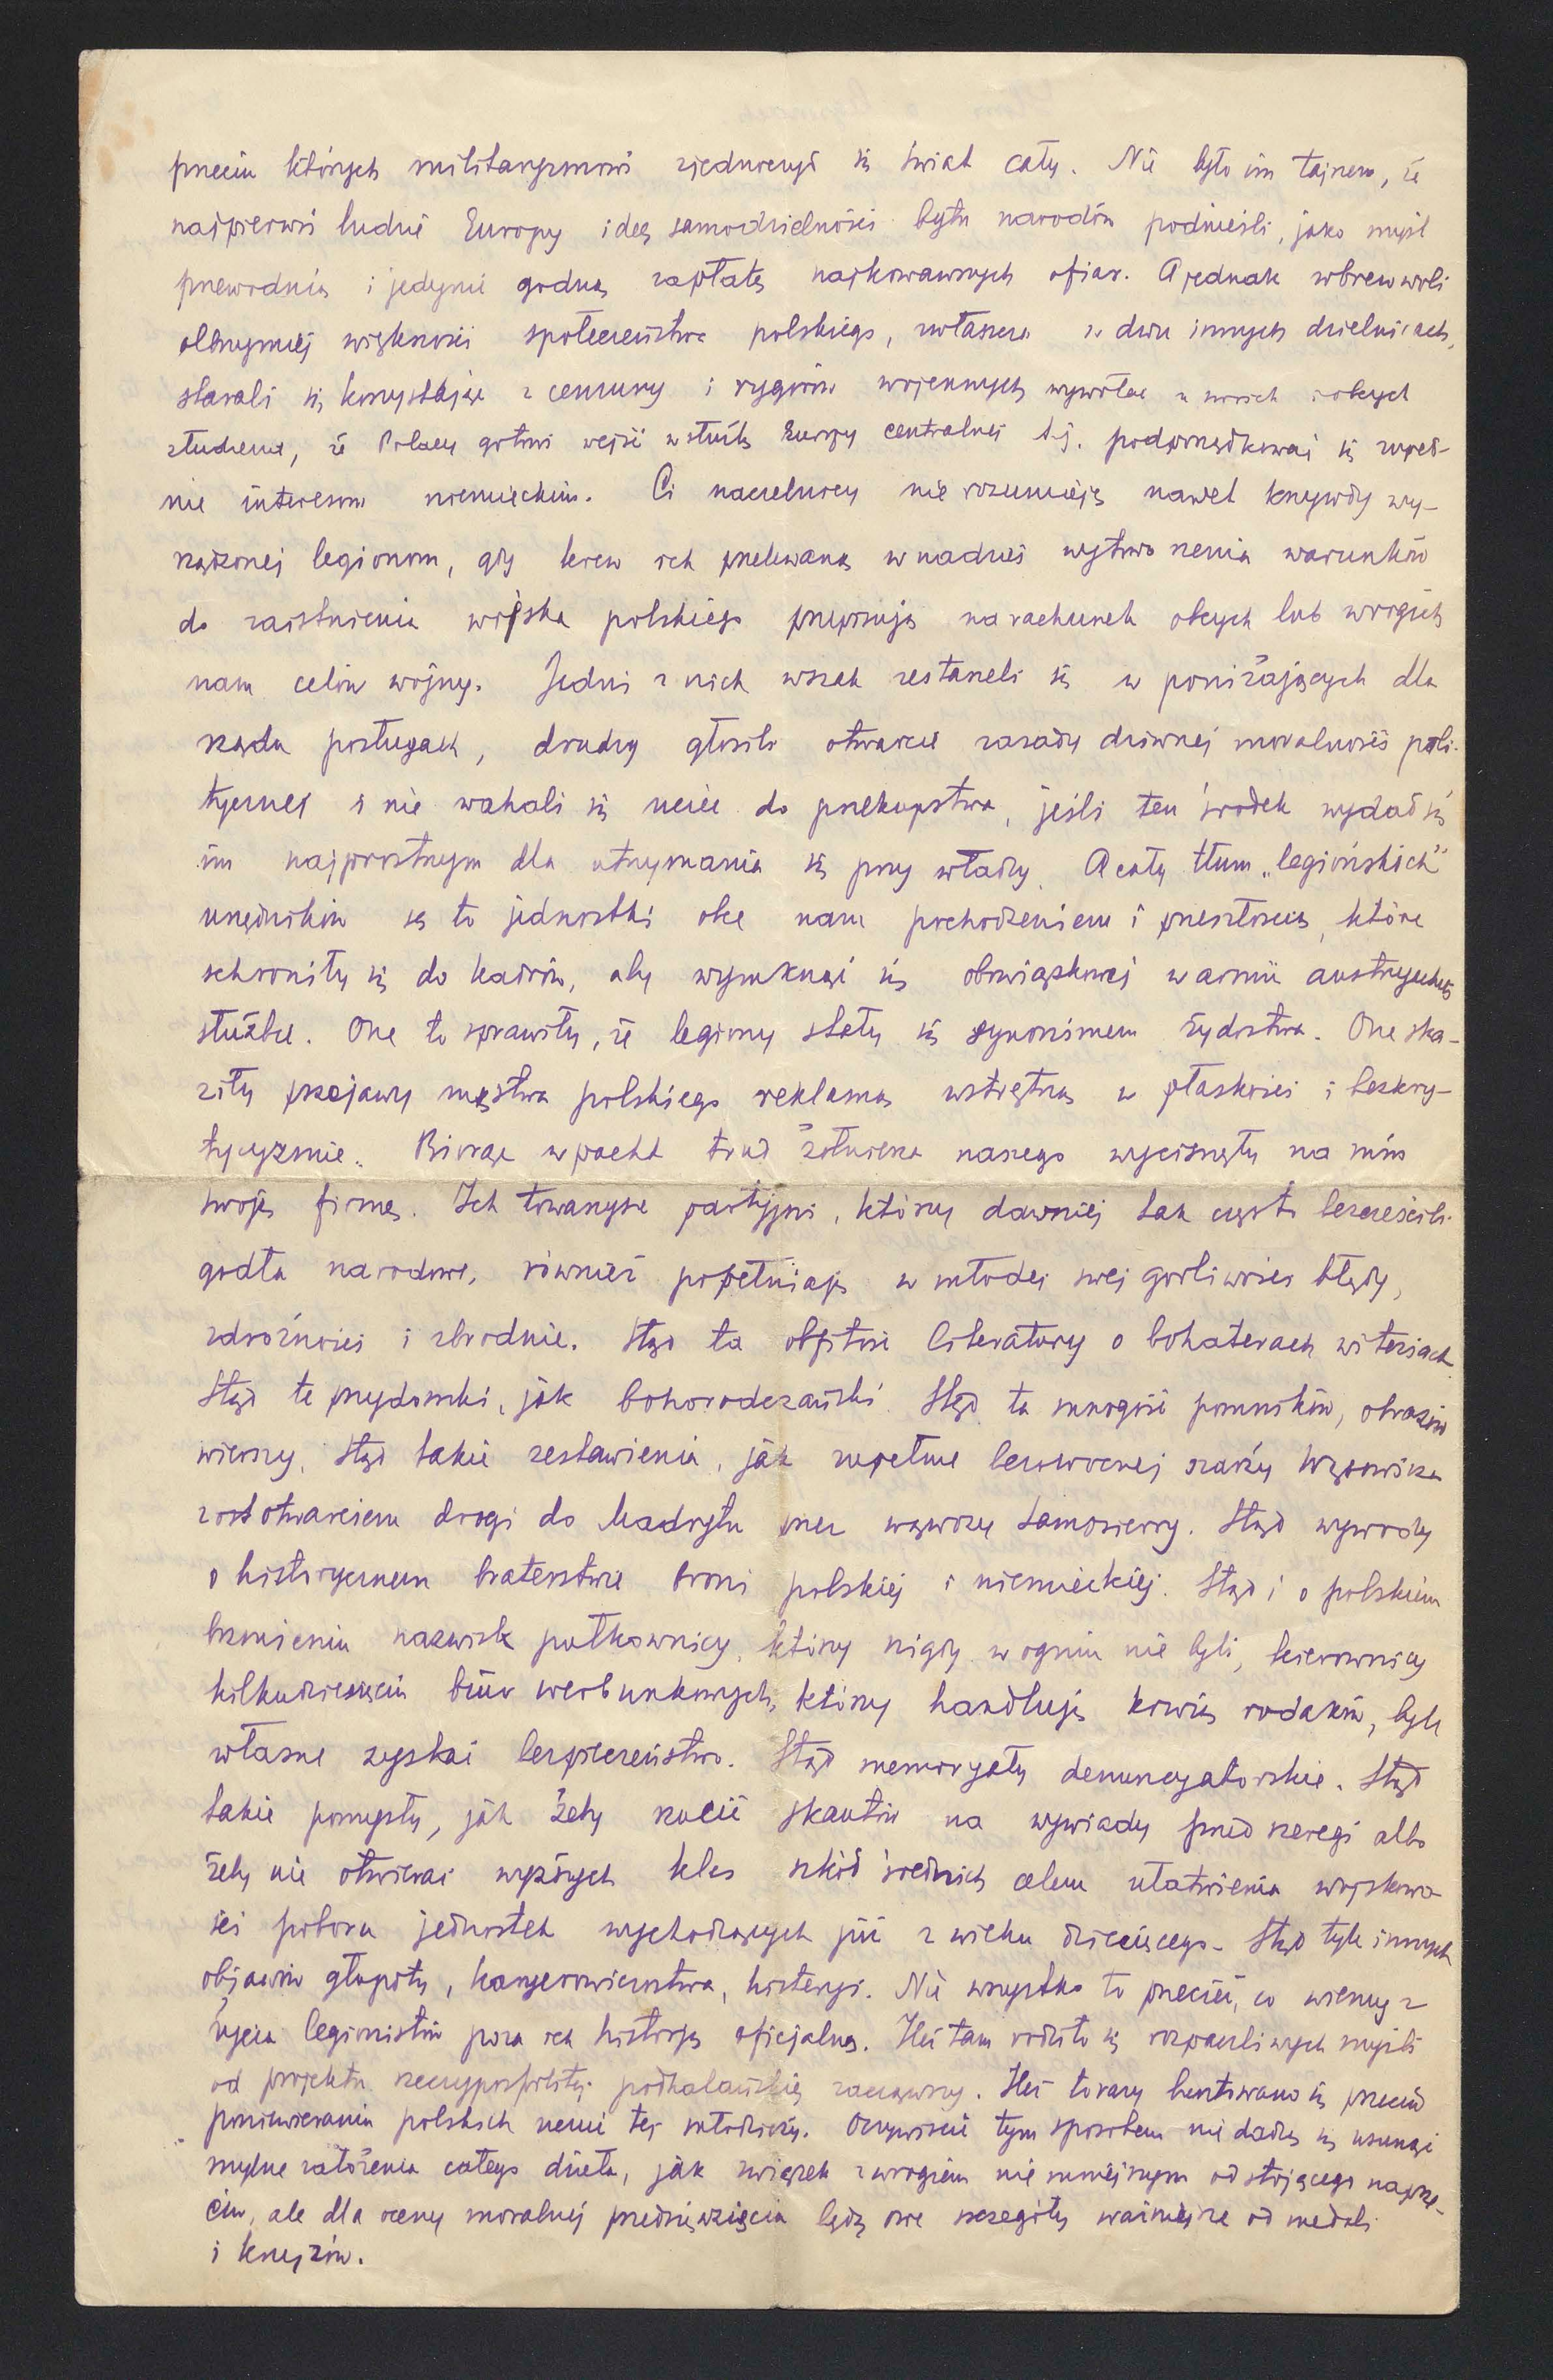 przeciw których militaryzmowi zjednoczył się świat cały. Nie było im tajnem, że
najpierwsi ludzie Europy ideę samodzielności bytu narodów podnieśli, jako myśl
przewodnią i jedynie godną zapłatę najkrwawszych ofiar. A jednak wbrew woli
olbrzymiej większości społeczeństwa polskiego, zwłaszcza w dwu innych dzielnicach,
starali się korzystając z cenzury i rygorów wojennych wywołać u swoich i obcych
złudzenie, że Polacy gotowi wejść w służbę Europy centralnej t.j. podporządkować się zupeł-
nie interesom niemieckim. Ci naczelnicy nie rozumieją nawet krzywdy wy-
rządzonej legionom, gdy krew ich przelewaną w nadziei wytworzenia warunków
do zaistnienia wojska polskiego przypisują na rachunek obcych lub wrogich
nam celów wojny. Jedni z nich wszak zestarzeli się w poniżających dla
rządu posługach, drudzy głosili otwarcie zasady dziwnej moralności poli-
tycznej i nie wahali się uciec do przekupstwa, jeśli ten środek wydał się
im najprostszym dla utrzymania się przy władzy. A cały tłum „legiońskich"
urzędników są to jednostki obce nam pochodzeniem i przeszłością, które
schroniły się do kadrów, aby wymknąć się obowiązkowej w armii austryackiej
służbie. One to sprawiły, że legiony stały się synonimem żydostwa. One ska-
ziły przejawy męstwa polskiego reklamą wstrętną w płaskości i bezkry-
tycyzmie. Biorąc w pacht trud żołnierza naszego wycisnęły na nim
swoją firmę. Ich towarzysze partyjni, którzy dawniej tak często bezcześcili
godła narodowe, również popełniają w młodej swej gorliwości błędy,
zdrożności i zbrodnie. Stąd ta obfitość literatury o bohaterach witeziach.
Stąd te przydomki, jak bohorodczański. Stąd ta mnogość pomników, obrazów
wierszy. Stąd takie zestawienia, jak zupełnie bezowocnej szarży Wąsowicza
z otwarciem drogi do Madrytu przez wąwozy Samosierry. Stąd wywody
o historycznem braterstwie broni polskiej i niemieckiej. Stąd i o polskiem
brzmieniu nazwisk pułkownicy, którzy nigdy w ogniu nie byli, kierownicy
kilkudziesięciu biur werbunkowych, którzy handlują krwią rodaków, byle
własne zyskać bezpieczeństwo. Stąd memoryały denuncyatorskie. Stąd
takie pomysły, jak żeby rzucić skautów na wywiady przed szeregi albo
żeby nie otwierać wyższych klas szkół średnich celem ułatwienia wojskowo-
ści poboru jednostek wychodzących już z wieku dziecięcego. Stąd tyle innych
objawów głupoty, karyerowiczostwa, histeryi. Nie wszystko to przecież, co wiemy z
życia legionistów poza ich historyą oficjalną. Ileż tam rodziło się rozpaczliwych myśli
od projektu rzeczypospolitej podhalańskiej zacząwszy. Ileż to razy buntowano się przeciw
poniewieraniu polskich uczuć tej młodzieży. Oczywiście tym sposobem nie dadzą się usunąć
mylne założenia całego dzieła, jak związek z wrogiem nie mniejszym od stojącego naprze-
ciw, ale dla oceny moralnej przedsięwzięcia będą owe szczegóły ważniejsze od medali
i krzyżów.